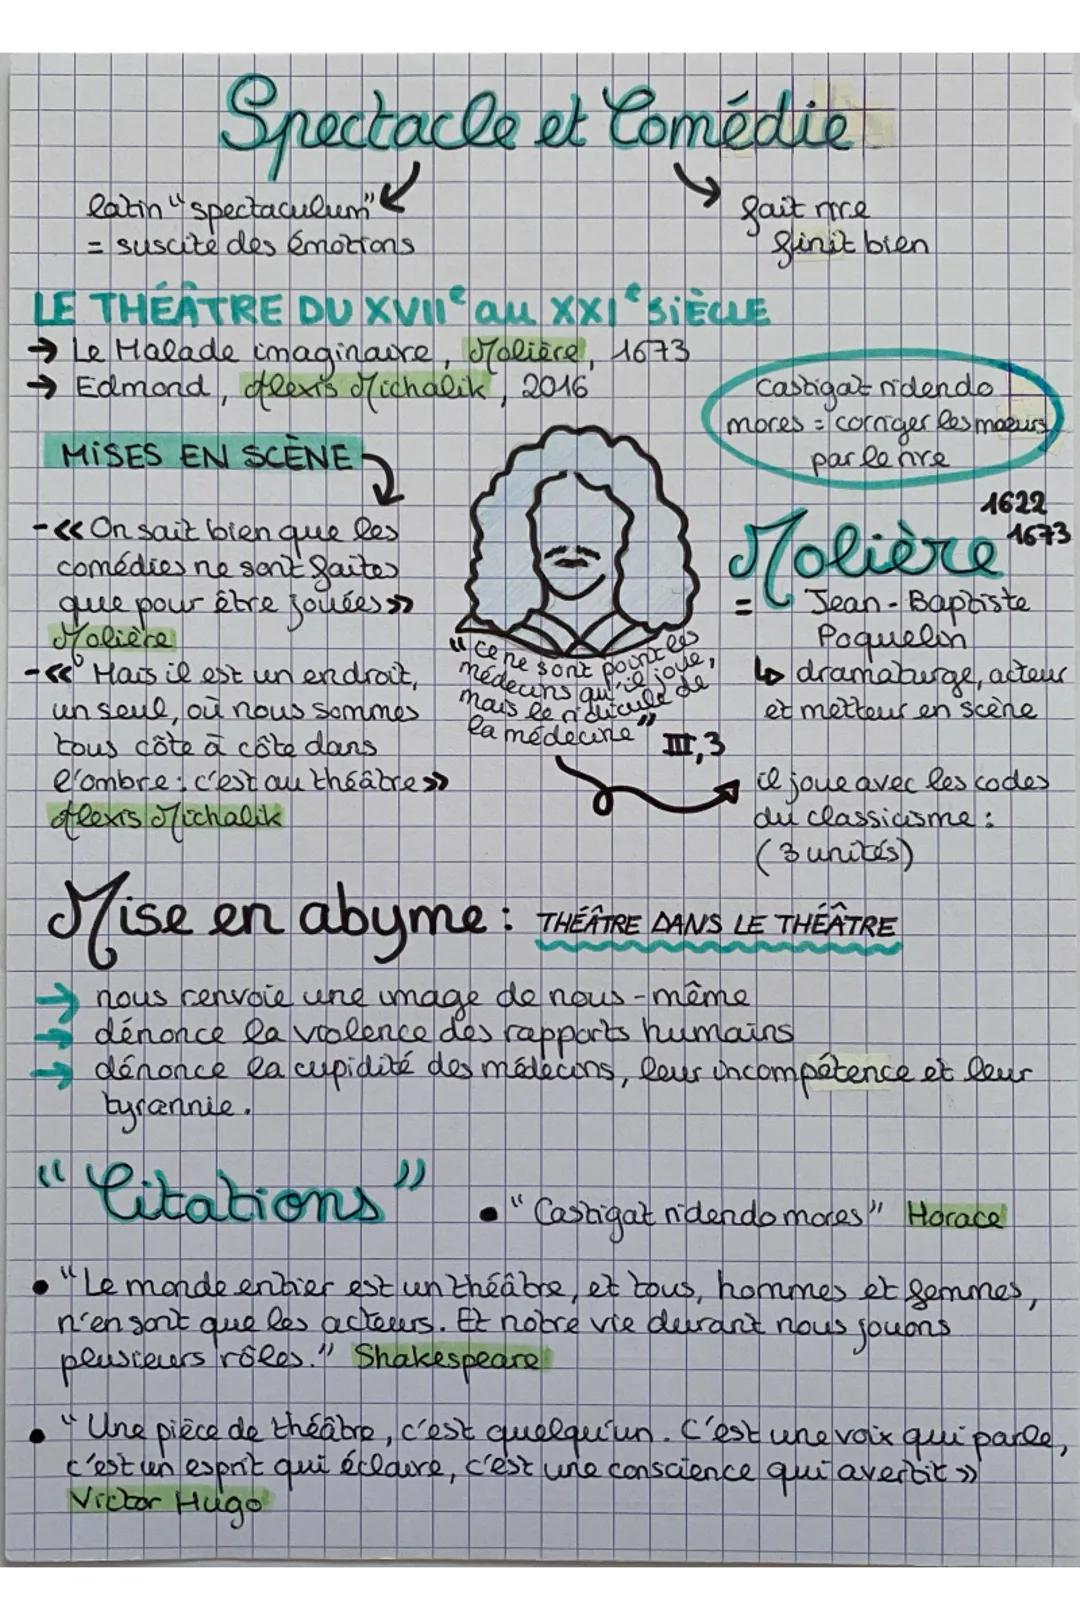 Spectacle et Comédie
latin "spectaculum"
= suscite des émotions
fait rire
finit bien
LE THÉÂTRE DU XVIIe au XXIe SIÈCLE
→ Le Malade imaginaire, Molière, 1673
→ Edmond, Alexis Michalik, 2016
Castigat ridendo
mores = corriger les moeurs
par le rire
MISES EN SCÈNE
- << On sait bien que les
comédies ne sont faites
que pour être jouées >>
Molière
- << Mais il est un endroit,
un seul, où nous sommes
tous côte à côte dans
l'ombre : c'est au théâtre >>
Alexis Michalik
"ce ne sont point les
médecins qu'il joue,
mais le ridicule de
la médecine"
III, 3
1622
1673
Molière
= Jean-Baptiste
Poquelin
↳ dramaturge, acteur
et metteur en scène
il joue avec les codes
du classicisme :
(3 unités)
Mise en abyme : THÉÂTRE DANS LE THÉÂTRE
→ nous renvoie une image de nous-même
→ dénonce la violence des rapports humains
→ dénonce la cupidité des médecins, leur incompétence et leur
tyrannie.
"Citations"
• "Castigat ridendo mores" Horace
• "Le monde entier est un théâtre, et tous, hommes et femmes,
n'en sont que les acteurs. Et notre vie durant nous jouons
plusieurs rôles." Shakespeare
• "Une pièce de théâtre, c'est quelqu'un. C'est une voix qui parle,
c'est un esprit qui éclaire, c'est une conscience qui avertit >>
Victor Hugo